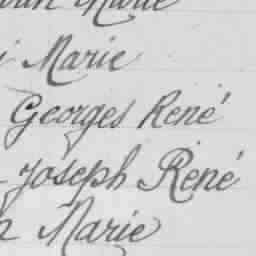 Marie
Marie
Georges René
Joseph René
Marie